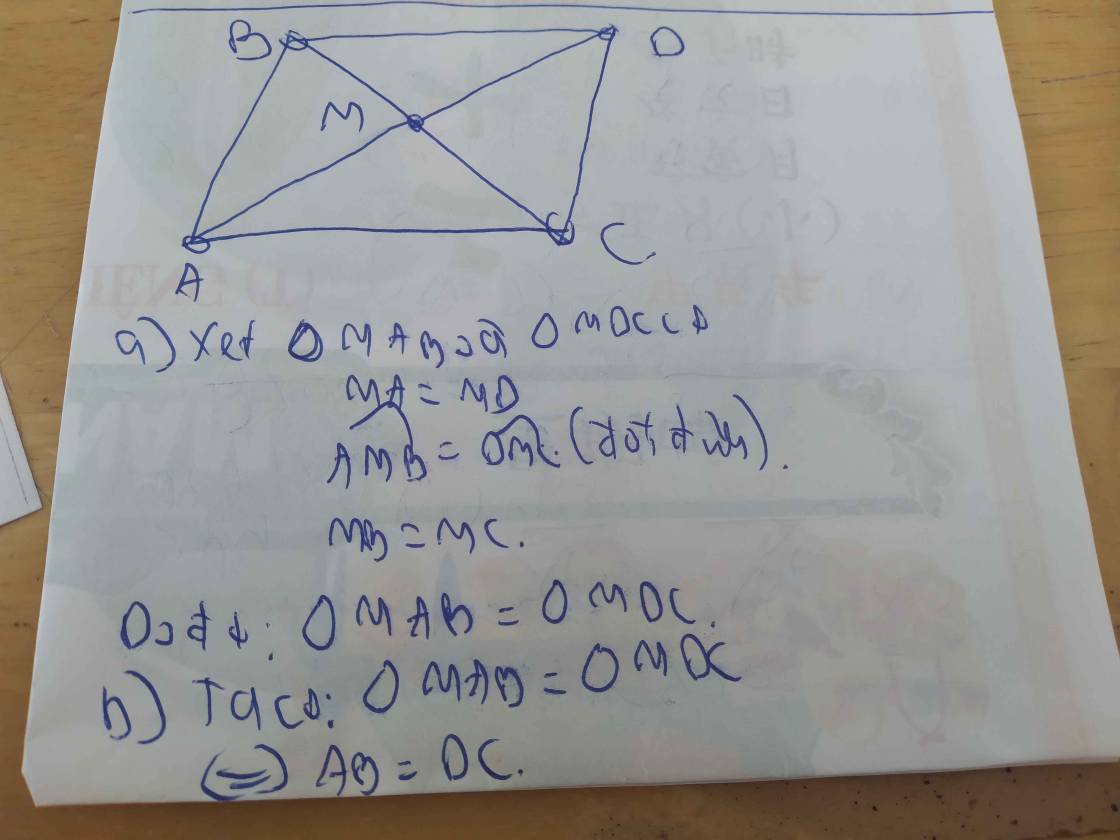 B
D
M
A
C
a) Xét Δ MAB và Δ MDC có
MA = MD
AMB = DMC (đối đỉnh).
MB = MC.
Do đó: Δ MAB = Δ MDC.
b) Ta có: Δ MAB = Δ MDC
(=) AB = DC.